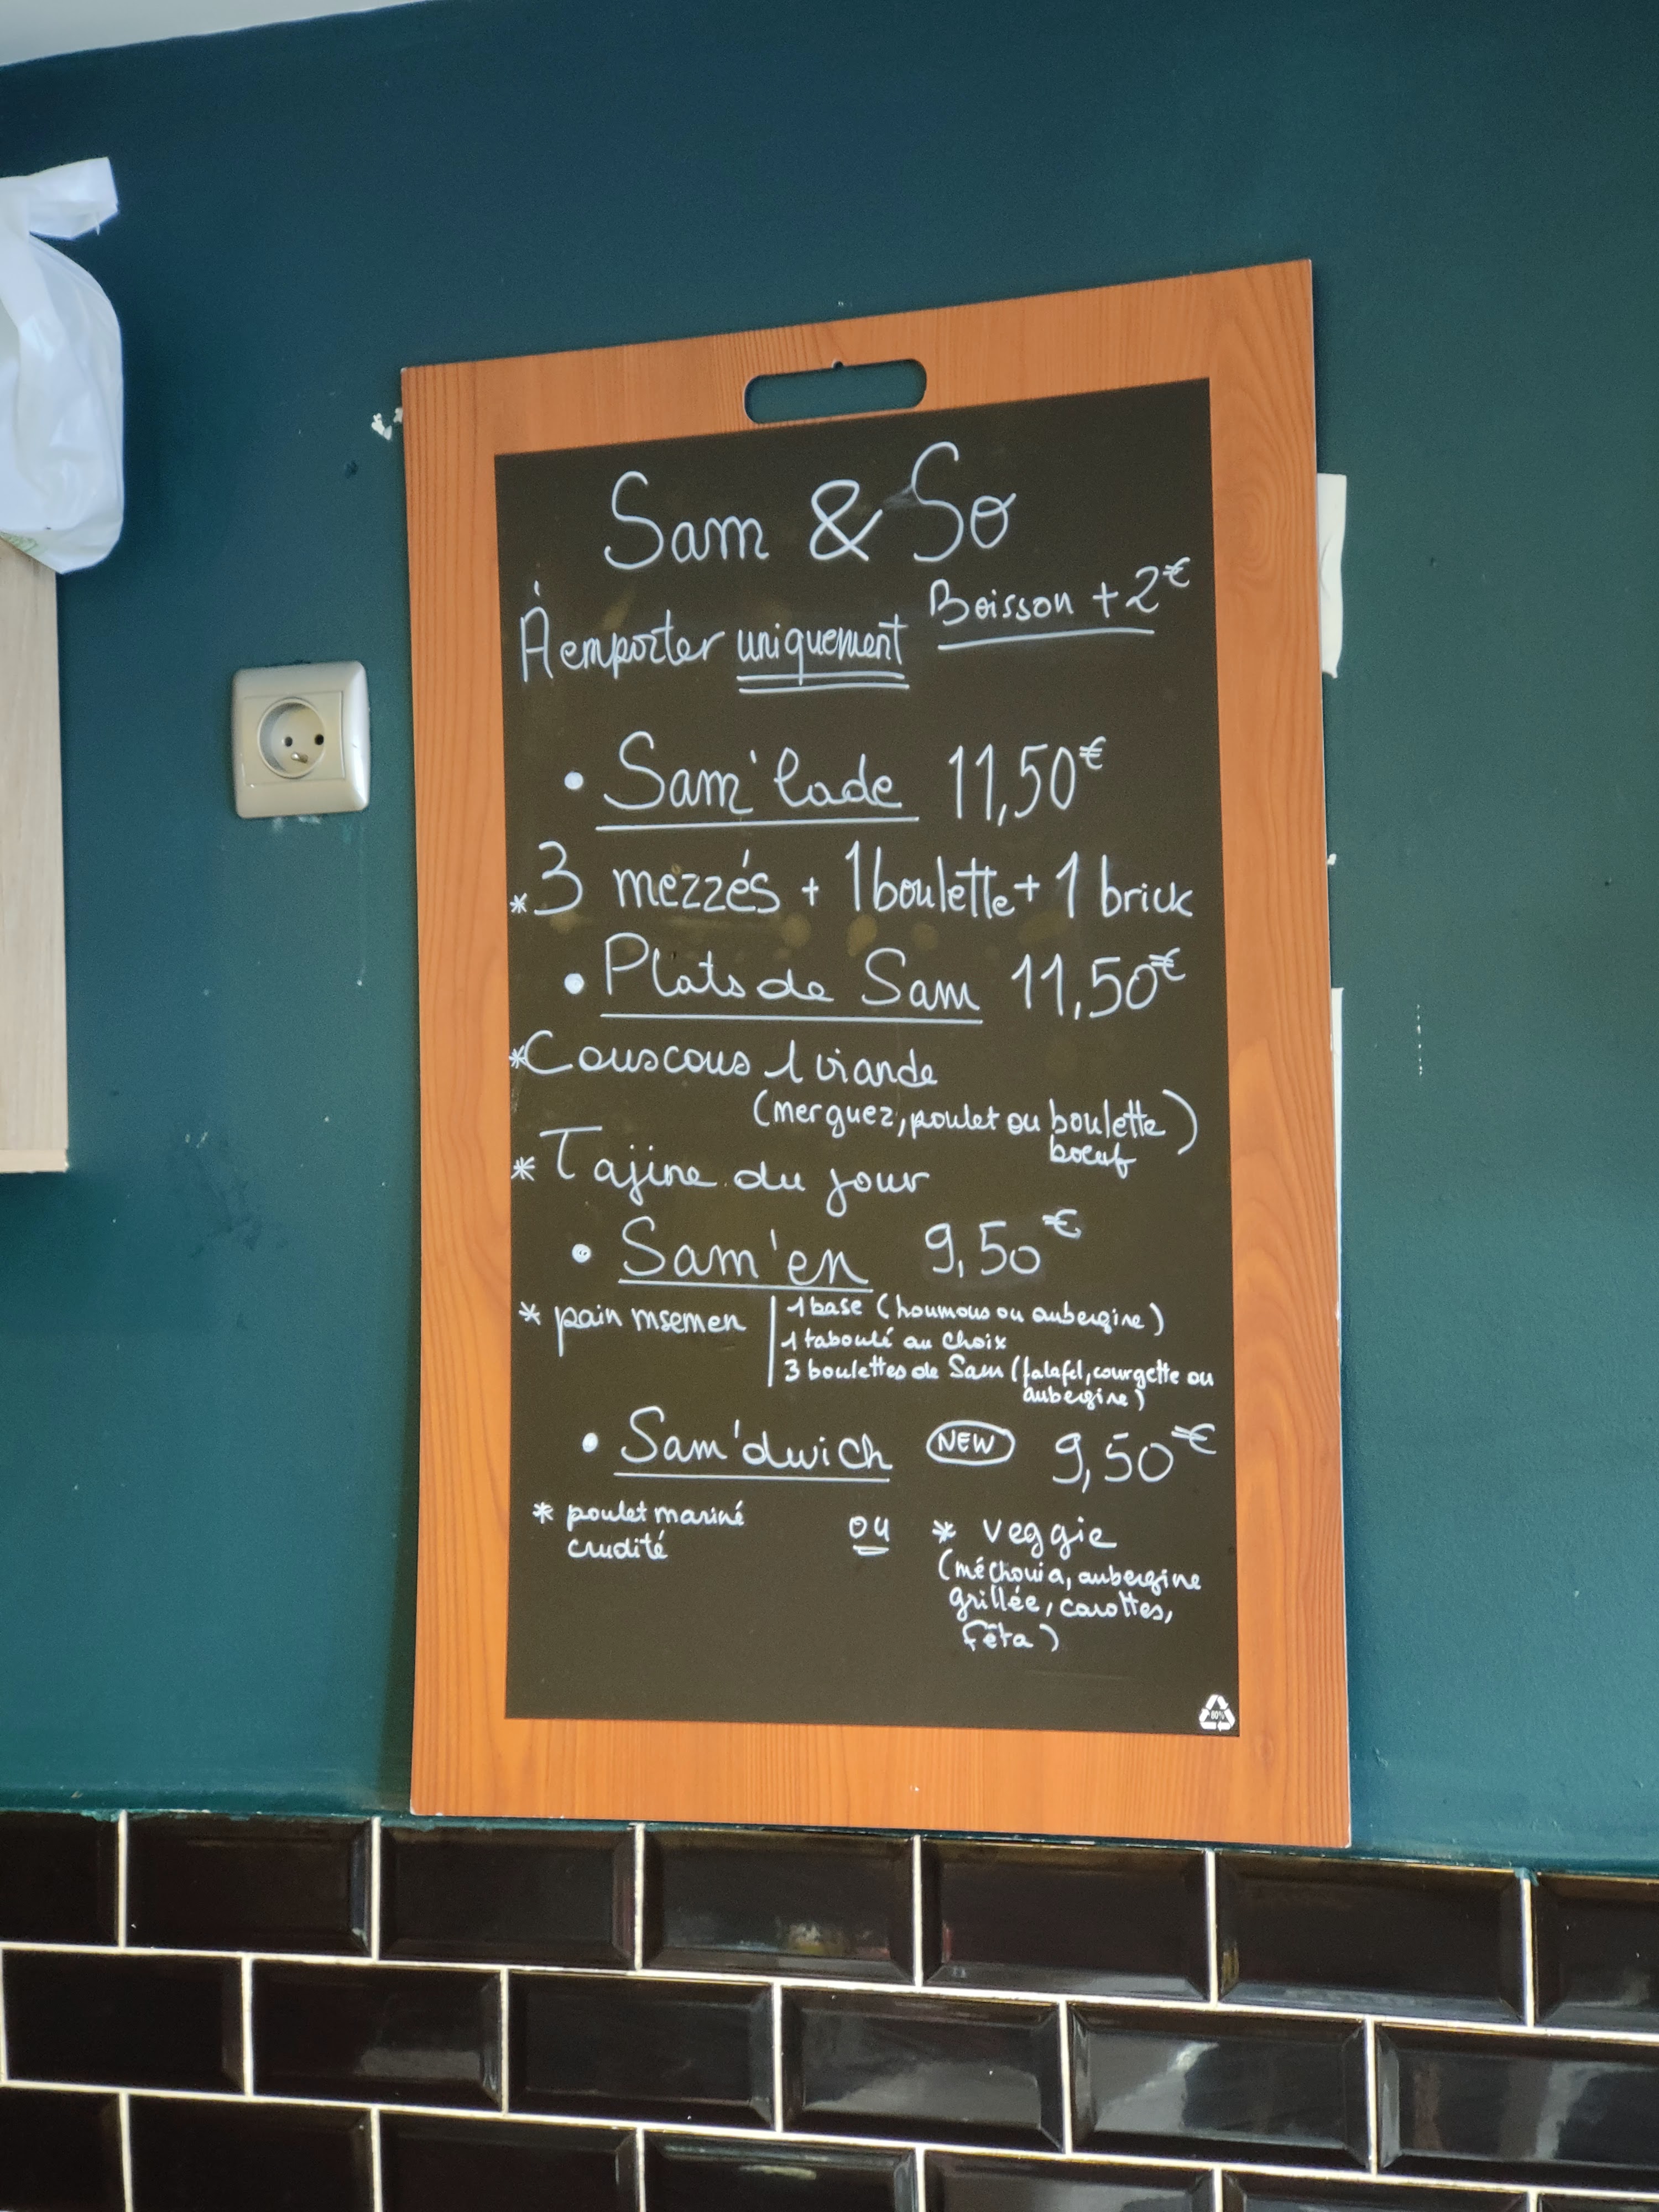 Sam & So
À emporter uniquement Boisson + 2€
• Sam'lade 11,50€
* 3 mezzés + 1 boulette + 1 brick
• Plats de Sam 11,50€
* Couscous 1 viande
(merguez, poulet ou boulette
boeuf)
* Tajine du jour
• Sam'en 9,50€
* pain msemen | 1 base (houmous ou aubergine)
1 taboulé au choix
3 boulettes de Sam (falafel, courgette ou
aubergine)
• Sam'dwich NEW 9,50€
* poulet mariné
crudité
ou
* veggie
(méchouia, aubergine
grillée, carottes,
fêta)
80%